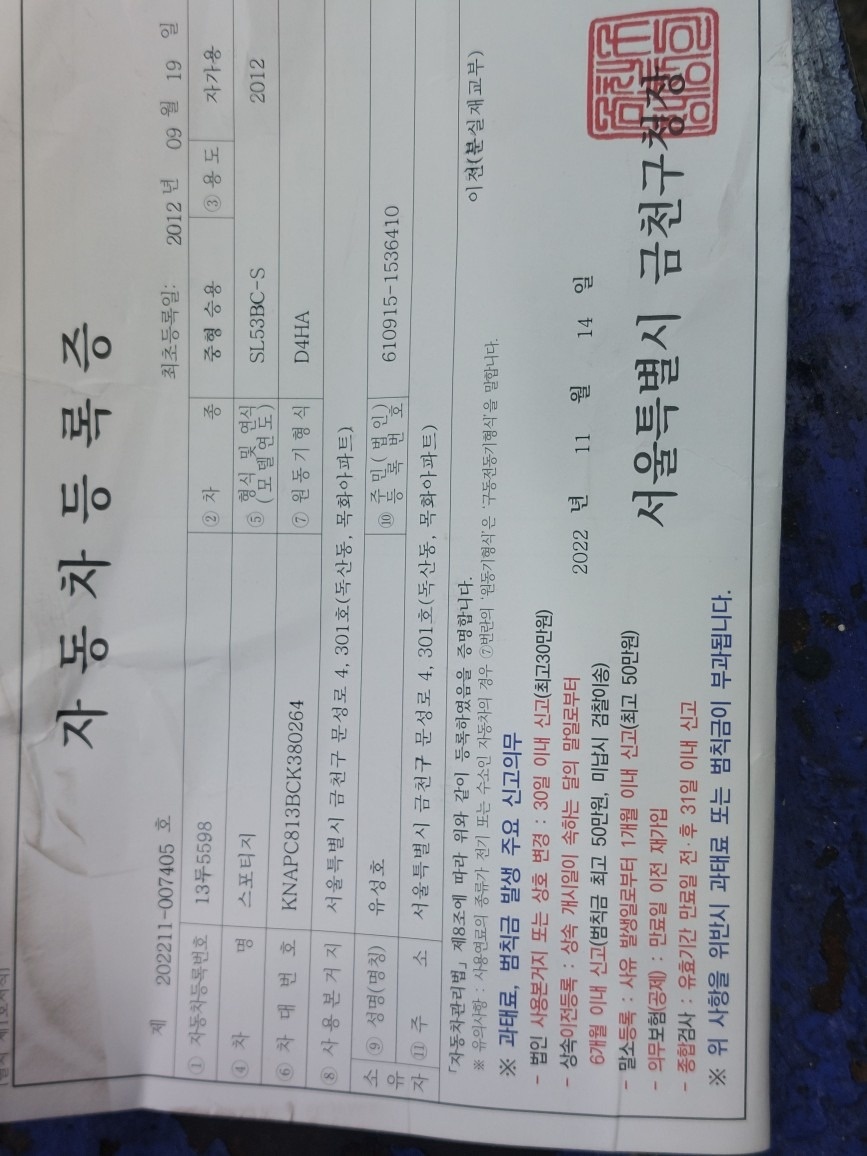 자동차등록증
제 202211-007405 호
최초등록일: 2012 년 09 월 19 일
① 자동차등록번호 13두5598 ② 차 종 중형 승용 ③ 용 도 자가용
④ 차 명 스포티지 ⑤ 형식 및 연식 (모델연도) SL53BC-S 2012
⑥ 차 대 번 호 KNAPC813BCK380264 ⑦ 원 동 기 형 식 D4HA
⑧ 사 용 본 거 지 서울특별시 금천구 문성로 4, 301호(독산동, 목화아파트)
소유자 ⑨ 성명(명칭) 유성호 ⑩ 주민(법인)등록번호 610915-1536410
⑪ 주 소 서울특별시 금천구 문성로 4, 301호(독산동, 목화아파트)
「자동차관리법」 제8조에 따라 위와 같이 등록하였음을 증명합니다.
※ 유의사항 : 사용연료의 종류가 전기 또는 수소인 자동차의 경우 ⑦번란의 '원동기형식'은 '구동전동기형식'을 말합니다.
이전(분실재교부)
※ 과태료, 범칙금 발생 주요 신고의무
- 법인 사용본거지 또는 상호 변경 : 30일 이내 신고(최고30만원)
- 상속이전등록 : 상속 개시일이 속하는 달의 말일로부터
6개월 이내 신고(범칙금 최고 50만원, 미납시 검찰이송)
- 말소등록 : 사유 발생일로부터 1개월 이내 신고(최고 50만원)
- 의무보험(공제) : 만료일 이전 재가입
- 종합검사 : 유효기간 만료일 전·후 31일 이내 신고
※ 위 사항을 위반시 과태료 또는 범칙금이 부과됩니다.
2022 년 11 월 14 일
서울특별시 금천구청장